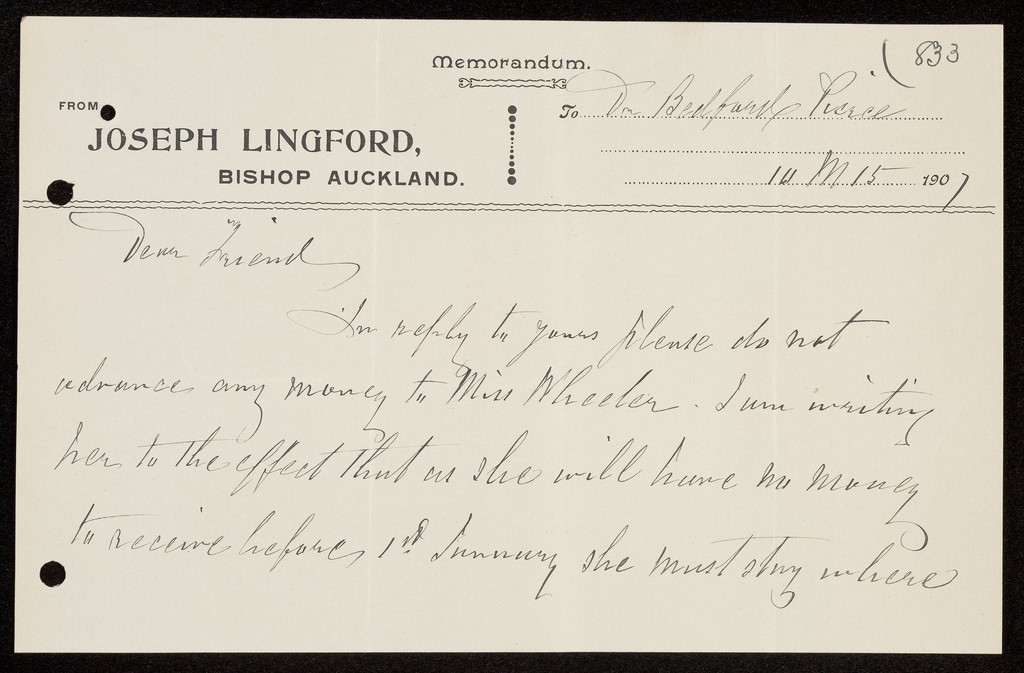 833
Memorandum.
FROM
JOSEPH LINGFORD,
BISHOP AUCKLAND.
To Dr Bedford Pierce
M 15 1907
Dear Friend
In reply to yours please do not
advance any money to Miss Wheeler. I am writing
her to the effect that as she will have no money
to receive before 1st January she must stay where